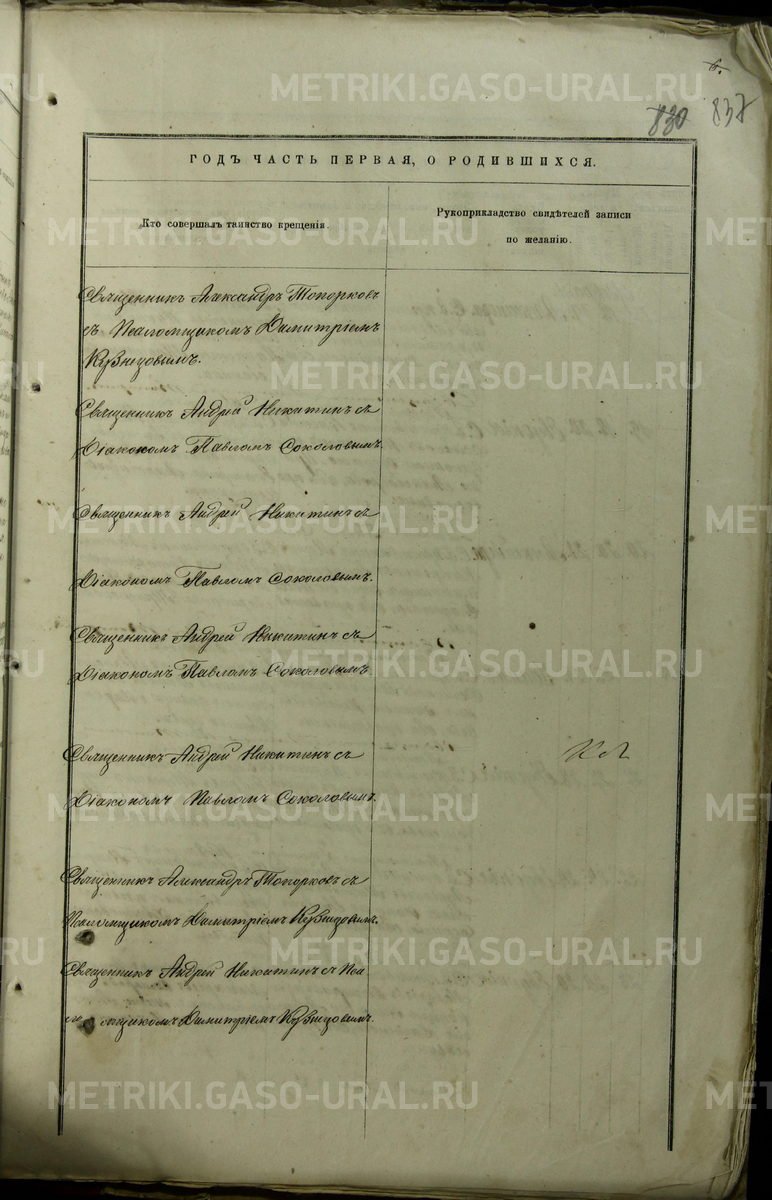 6.
830 837
ГОДЪ ЧАСТЬ ПЕРВАЯ, О РОДИВШИХСЯ.
Кто совершалъ таинство крещенія.
Рукоприкладство свидѣтелей записи
по желанію.
Священникъ Александръ Топорковъ
съ Псаломщикомъ Димитріемъ
Кузнецовымъ.
Священникъ Андрей Никитинъ съ
Діакономъ Павломъ Соколовымъ.
Священникъ Андрей Никитинъ съ
Діакономъ Павломъ Соколовымъ.
Священникъ Андрей Никитинъ съ
Діакономъ Павломъ Соколовымъ
Священникъ Андрей Никитинъ съ
Діакономъ Павломъ Соколовымъ.
Священникъ Александръ Топорковъ съ
Псаломщикомъ Димитріемъ Кузнецовымъ.
Священникъ Андрей Никитинъ съ Пса
ломщикомъ Димитріемъ Кузнецовымъ.
METRIKI.GASO-URAL.RU